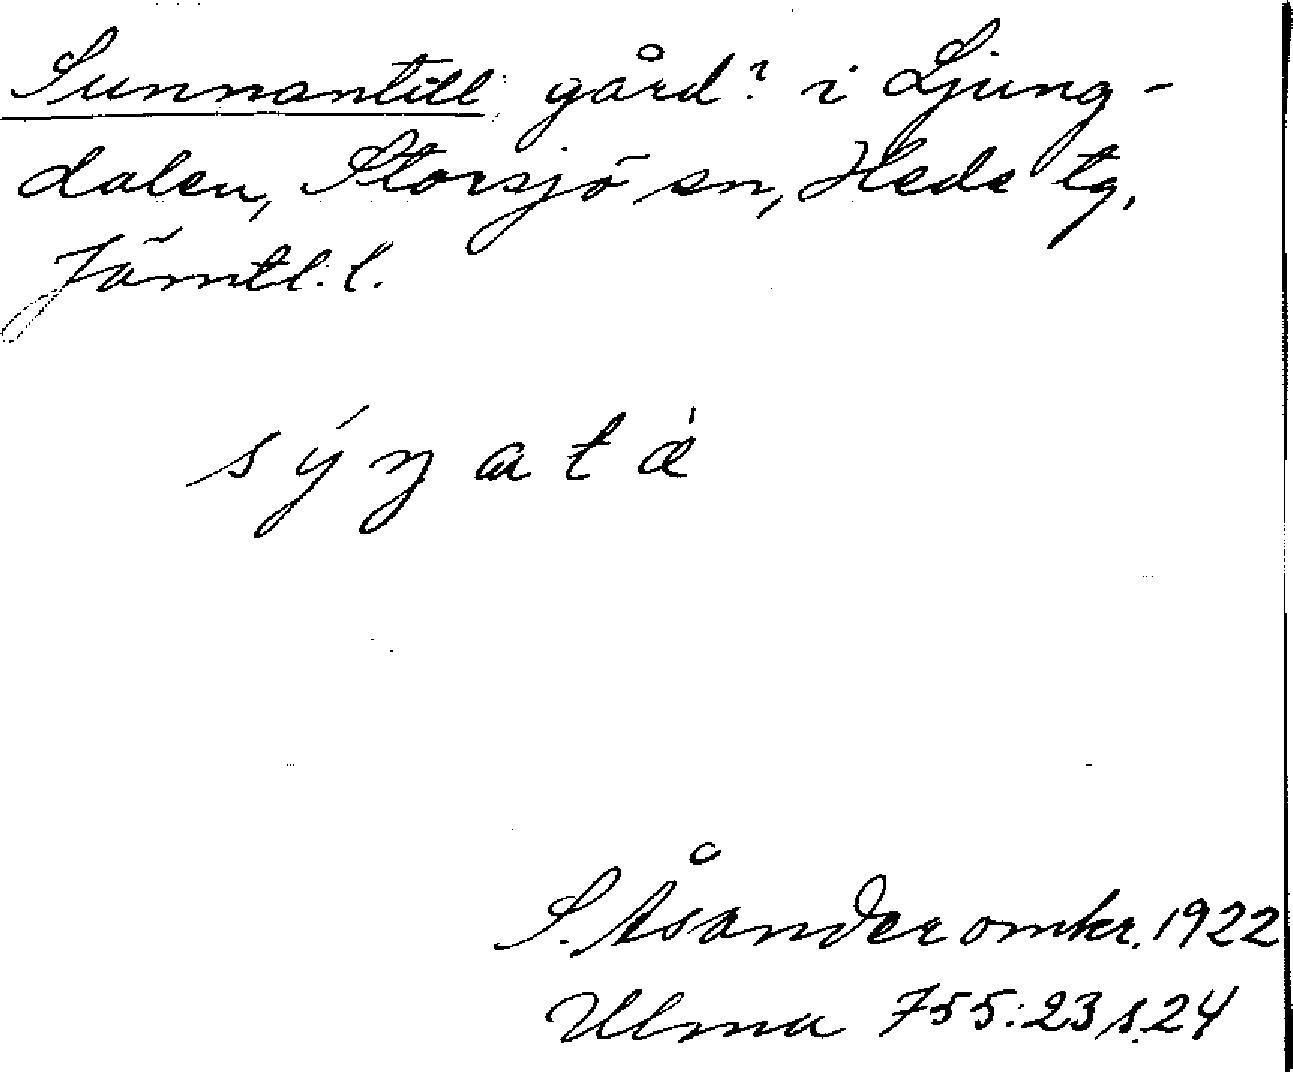 Sunnantill gård? i Ljung-
dalen, Storsjö sn, Hede tg,
Jämtl. l.
sýnatá
S. Åsander omkr. 1922
Ulma 755:23 s. 24